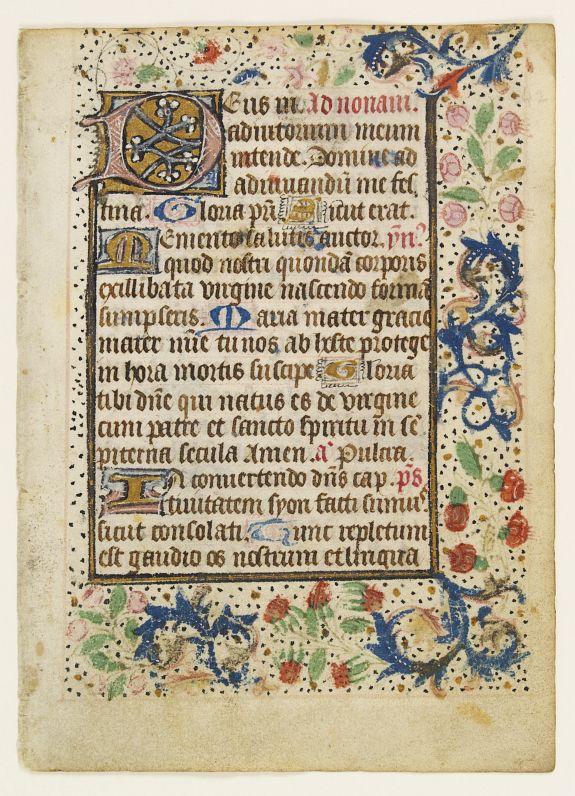 Deus in. Ad nonam.
adiutorium meum
intende. Domine ad
adiuvandū me fes
tina. Gloria pri Sicut erat.
Memento salutis auctor. yn?
quod nostri quondā corporis
exillibata virgine nascendo formā
sumpseris. Maria mater gracie
mater mie tu nos ab hoste protege
in hora mortis suscipe Gloria
tibi dn̄e qui natus es de virgine
cum patre et sancto spiritu in sē
piterna secula Amen. a' Pulcra.
In convertendo dn̄s cap. ps
tivitatem syon facti sumus
sicut consolati. Tunc repletum
est gaudio os nostrum et lingua